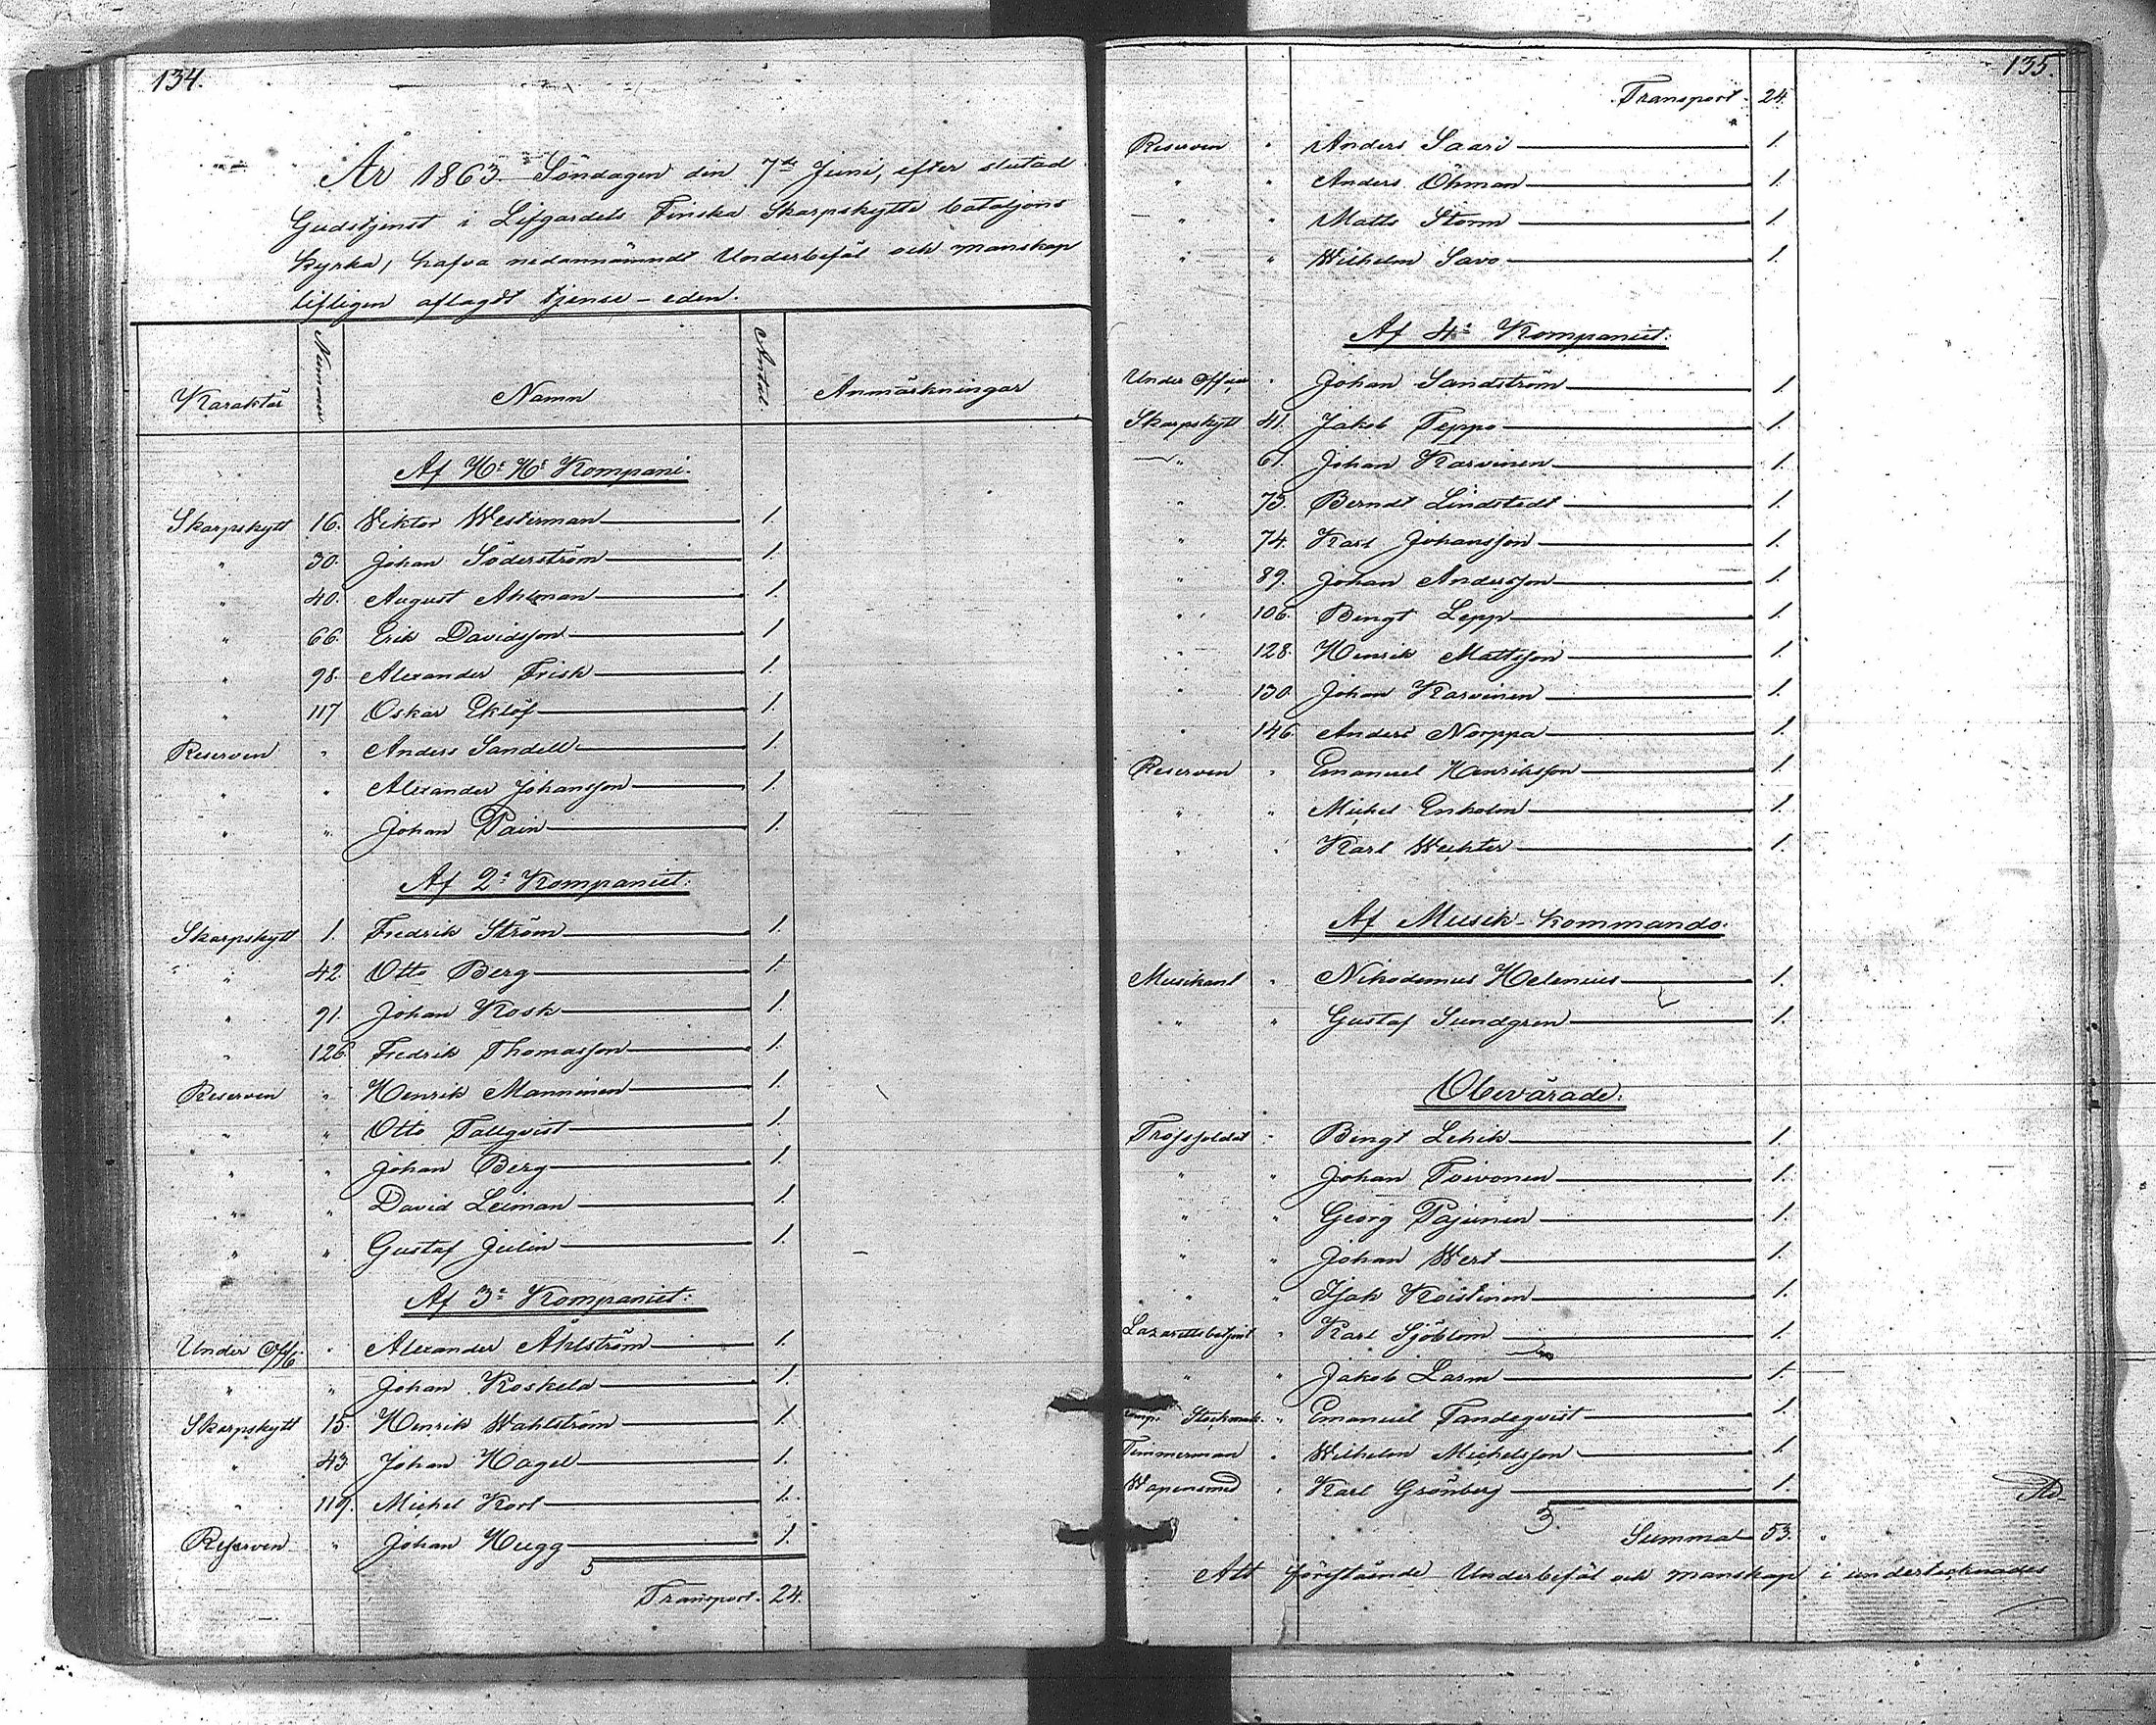 134.
År 1863 Söndagen den 7de Juni, efter slutad
Gudstjenst i Lifgardets Finska Skarpskytte bataljons
kyrka, hafva nedannämndt Underbefäl och manskap
lifligen aflagdt tjenste-eden.
Karaktär Nummer Namn Antal. Anmärkningar
Af Hs Hs Kompani.
Skarpskytt 16. Viktor Westerman 1.
" 30. Johan Söderström 1.
" 40. August Ahlman 1.
" 66. Erik Davidsson 1.
" 98. Alexander Frisk 1.
" 117 Oskar Eklöf 1.
Reserven " Anders Sandell 1.
" " Alexander Johansson 1.
" " Johan Pain 1.
Af 2a Kompaniet:
Skarpskytt 1. Fredrik Ström 1.
" 42. Otto Berg 1.
" 91. Johan Kosk 1.
" 126 Fredrik Thomasson 1.
Reserven " Henrik Manninen 1.
" " Otto Tallqvist 1.
" " Johan Berg 1.
" " David Leiman 1.
" " Gustaf Julin 1.
Af 3e Kompaniet:
Under Off. " Alexander Åhlström 1.
" " Johan Koskela 1.
Skarpskytt 15 Henrik Wahlström 1.
" 43. Johan Hagel 1.
" 119. Michel Kort 1.
Reserven " Johan Hugg 1.
5
Transport. 24.
135.
Transport. 24.
Reserven " Anders Saari 1.
" " Anders Öhman 1.
" " Matts Storm 1.
" " Wilhelm Savo 1.
Af 4e Kompaniet:
Under Officer " Johan Sandström 1.
Skarpskytt 41. Jakob Teppo 1.
" 61. Johan Karvinen 1.
" 73. Berndt Lindstedt 1.
" 74. Karl Johansson 1.
" 89. Johan Andersson 1.
" 106. Bengt Lepp 1.
" 128. Henrik Mattsson 1.
" 130. Johan Karvinen 1.
" 146. Anders Norppa 1.
Reserven " Emanuel Henriksson 1.
" " Michel Enholm 1.
" " Karl Wechter 1.
Af Musik-kommando.
Musikant " Nikodemus Helenius 1.
" " Gustaf Sundgren 1.
Obevärade.
Trosssoldat " Bengt Lehik 1.
" " Johan Toivonen 1.
" " Georg Pajunen 1.
" " Johan Wert 1.
" " Isak Koistinen 1.
Lazarettsbetjent " Karl Sjöblom 1.
" " Jakob Larm 1.
" Emanuel Tandeqvist 1.
Timmerman " Wilhelm Michelsson 1.
Wapensmed " Karl Grönberg 1.
3.
Summa 53.
Att förestående Underbefäl och manskap i undertecknades